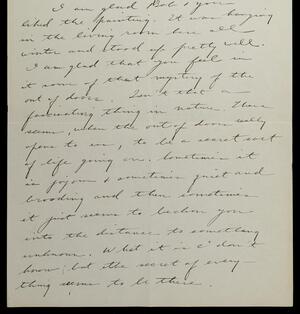 I am glad Bob & you
liked the painting. It was hanging
in the living room here all
winter and stood up pretty well.
I am glad that you feel in
it some of that mystery of the
out of doors. Isn't that a
fascinating thing in nature. There
seems, when the out of doors really
opens to us, to be a secret sort
of life going on. Sometimes it
is joyous & sometimes quiet and
brooding and then sometimes
it just seems to beckon you
into the distance to something
unknown. What it is I don't
know; but the secret of every-
thing seems to be there.